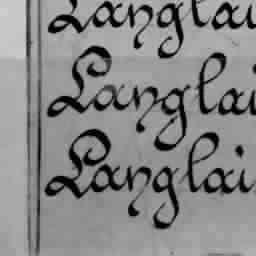 Langlai
Langlai
Langlai